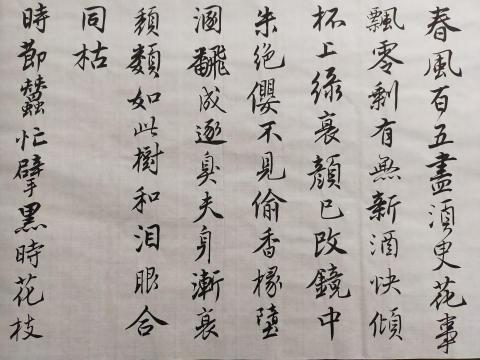 春風百五盡須臾花事
飄零剩有無新酒快傾
杯上綠衰顏已改鏡中
朱絕纓不見偷香椽墮
溷飜成逐臭夫身漸衰
頹類如此樹和泪眼合
同枯
時節蠶忙擘黑時花枝